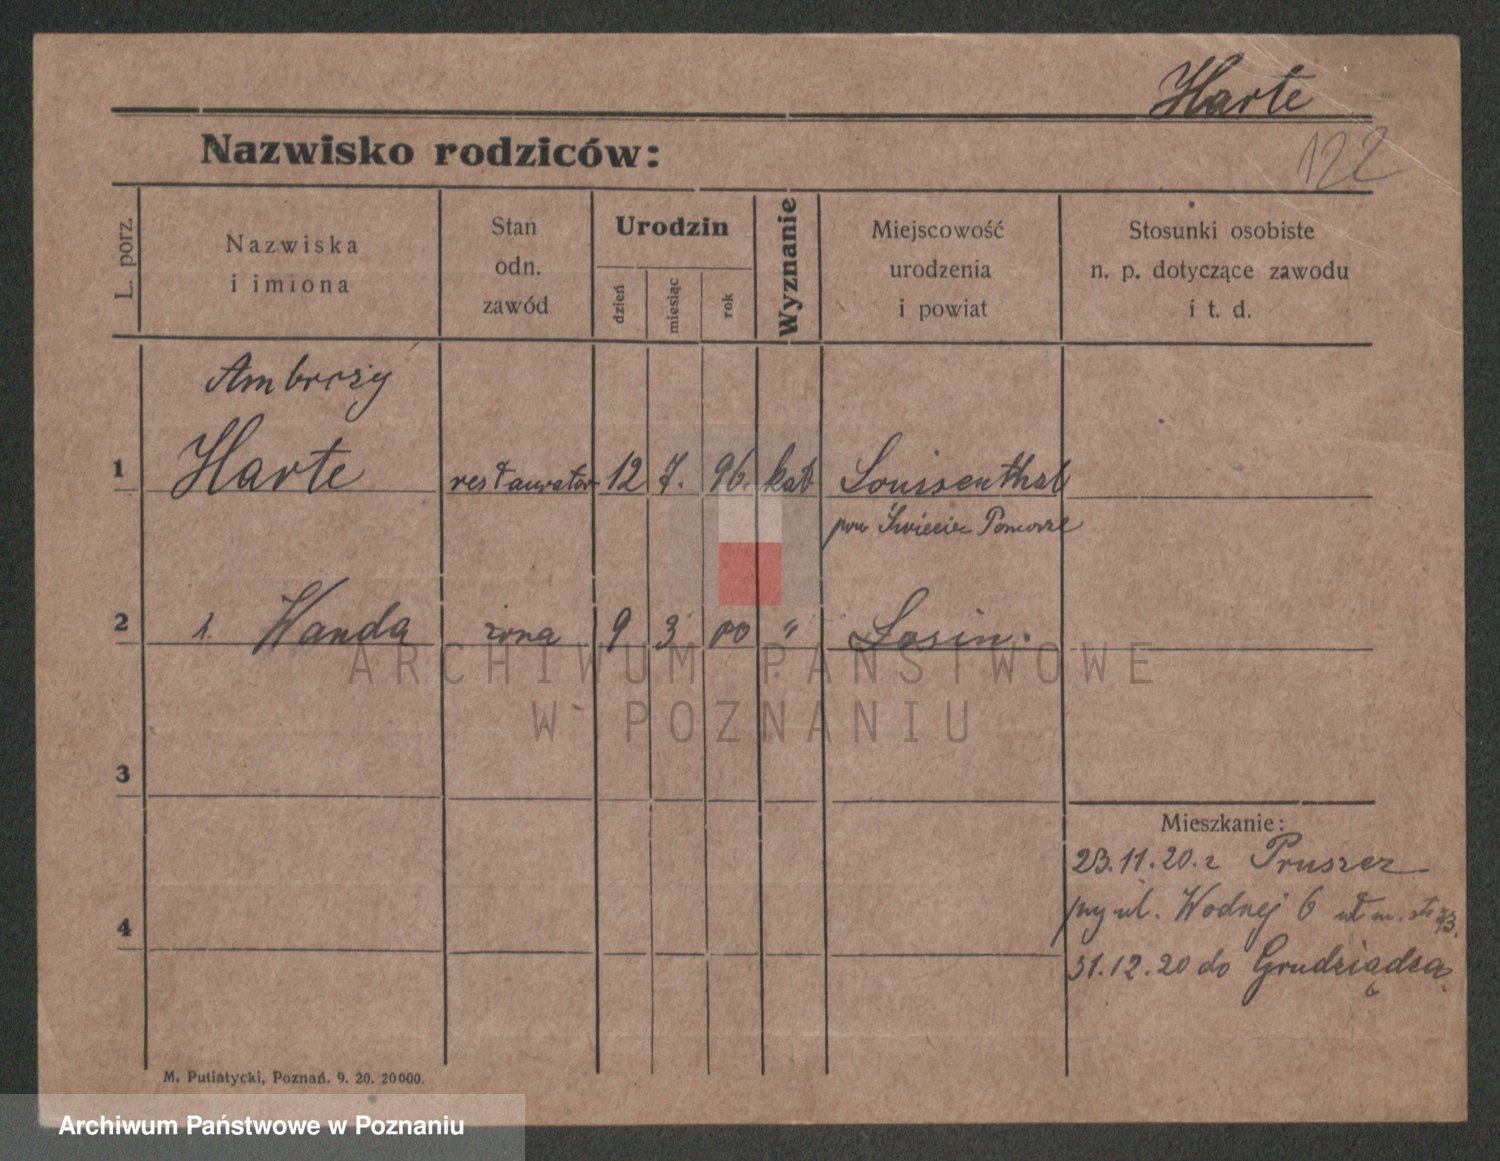 Harte
122
Nazwisko rodziców:
L. porz.
Nazwiska
i imiona
Stan
odn.
zawód
Urodzin
dzień
miesiąc
rok
Wyznanie
Miejscowość
urodzenia
i powiat
Stosunki osobiste
n. p. dotyczące zawodu
i t. d.
Ambroży
1 Harte restaurator 12 7. 96. kat Louisenthal
pow Świecie Pomorze
2 1. Wanda żona 9 3 00 " Losin.
3
Mieszkanie:
23.11.20. z Pruszcz
ul. Wodnej 6
4
31.12.20 do Grudziądza
M. Putiatycki, Poznań. 9. 20. 20000.
ARCHIWUM PAŃSTWOWE
W POZNANIU
Archiwum Państwowe w Poznaniu